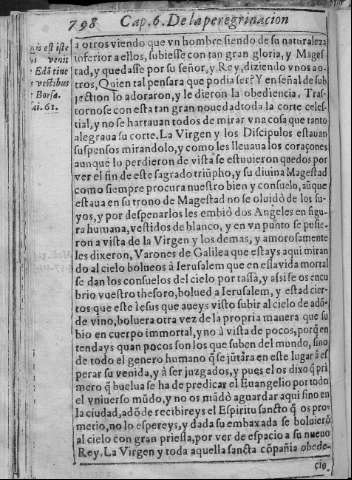 798 Cap. 6. De la peregrinacion
nis est iste
venit
Edō tinc
vestibus
Bosra.
ai. 61.
a otros viendo que vn hombre siendo de su naturaleza
inferior a ellos, subiesse con tan gran gloria, y Mages
tad, y quedasse por su señor, y Rey, diziendo vnos a o-
tros, Quien tal pensara que podia ser? Y en señal de sub
jection lo adoraron, y le dieron la obediencia. Tras-
tornose con esta tan gran nouedad toda la corte celes-
tial, y no se hartauan todos de mirar vna cosa que tanto
alegraua su corte. La Virgen y los Discipulos estauan
suspensos mirandolo, y como les lleuaua los coraçones
aunque lo perdieron de vista se estuuieron quedos por
ver el fin de este sagrado triūpho, y su diuina Magestad
como siempre procura nuestro bien y consuelo, aūque
estaua en su trono de Magestad no se oluidò de los su-
yos, y por despenarlos les embiò dos Angeles en figu-
ra humana, vestidos de blanco, y en vn punto se pusie-
ron a vista de la Virgen y los demas, y amorosamente
les dixeron, Varones de Galilea que estays aqui miran
do al cielo bolueos à Ierusalem que en essa vida mortal
se dan los consuelos del cielo por tassa, y assi se os encu
brio vuestro thesoro, bolued a Ierusalem, y estad cier-
tos que este Iesus que aueys visto subir al cielo de adō-
de vino, boluera otra vez de la propria manera que su
bio en cuerpo immortal, y no à vista de pocos, porq̃ en
tendays quan pocos son los que suben del mundo, sino
de todo el genero humano q̃ se jūtàra en este lugar à es
perar su venida, y à ser juzgados, y pues el os dixo q̃ pri
mero q̃ buelua se ha de predicar el Euangelio por todo
el vniuerso mūdo, y no os mādò aguardar aqui sino en
la ciudad, adōde recibireys el Espiritu sancto q̃ os pro-
metio, no lo espereys, y dada su embaxada se boluierō
al cielo con gran priessa, por ver de espacio a su nueuo
Rey. La Virgen y toda aquella sancta cōpañia obede-
cio